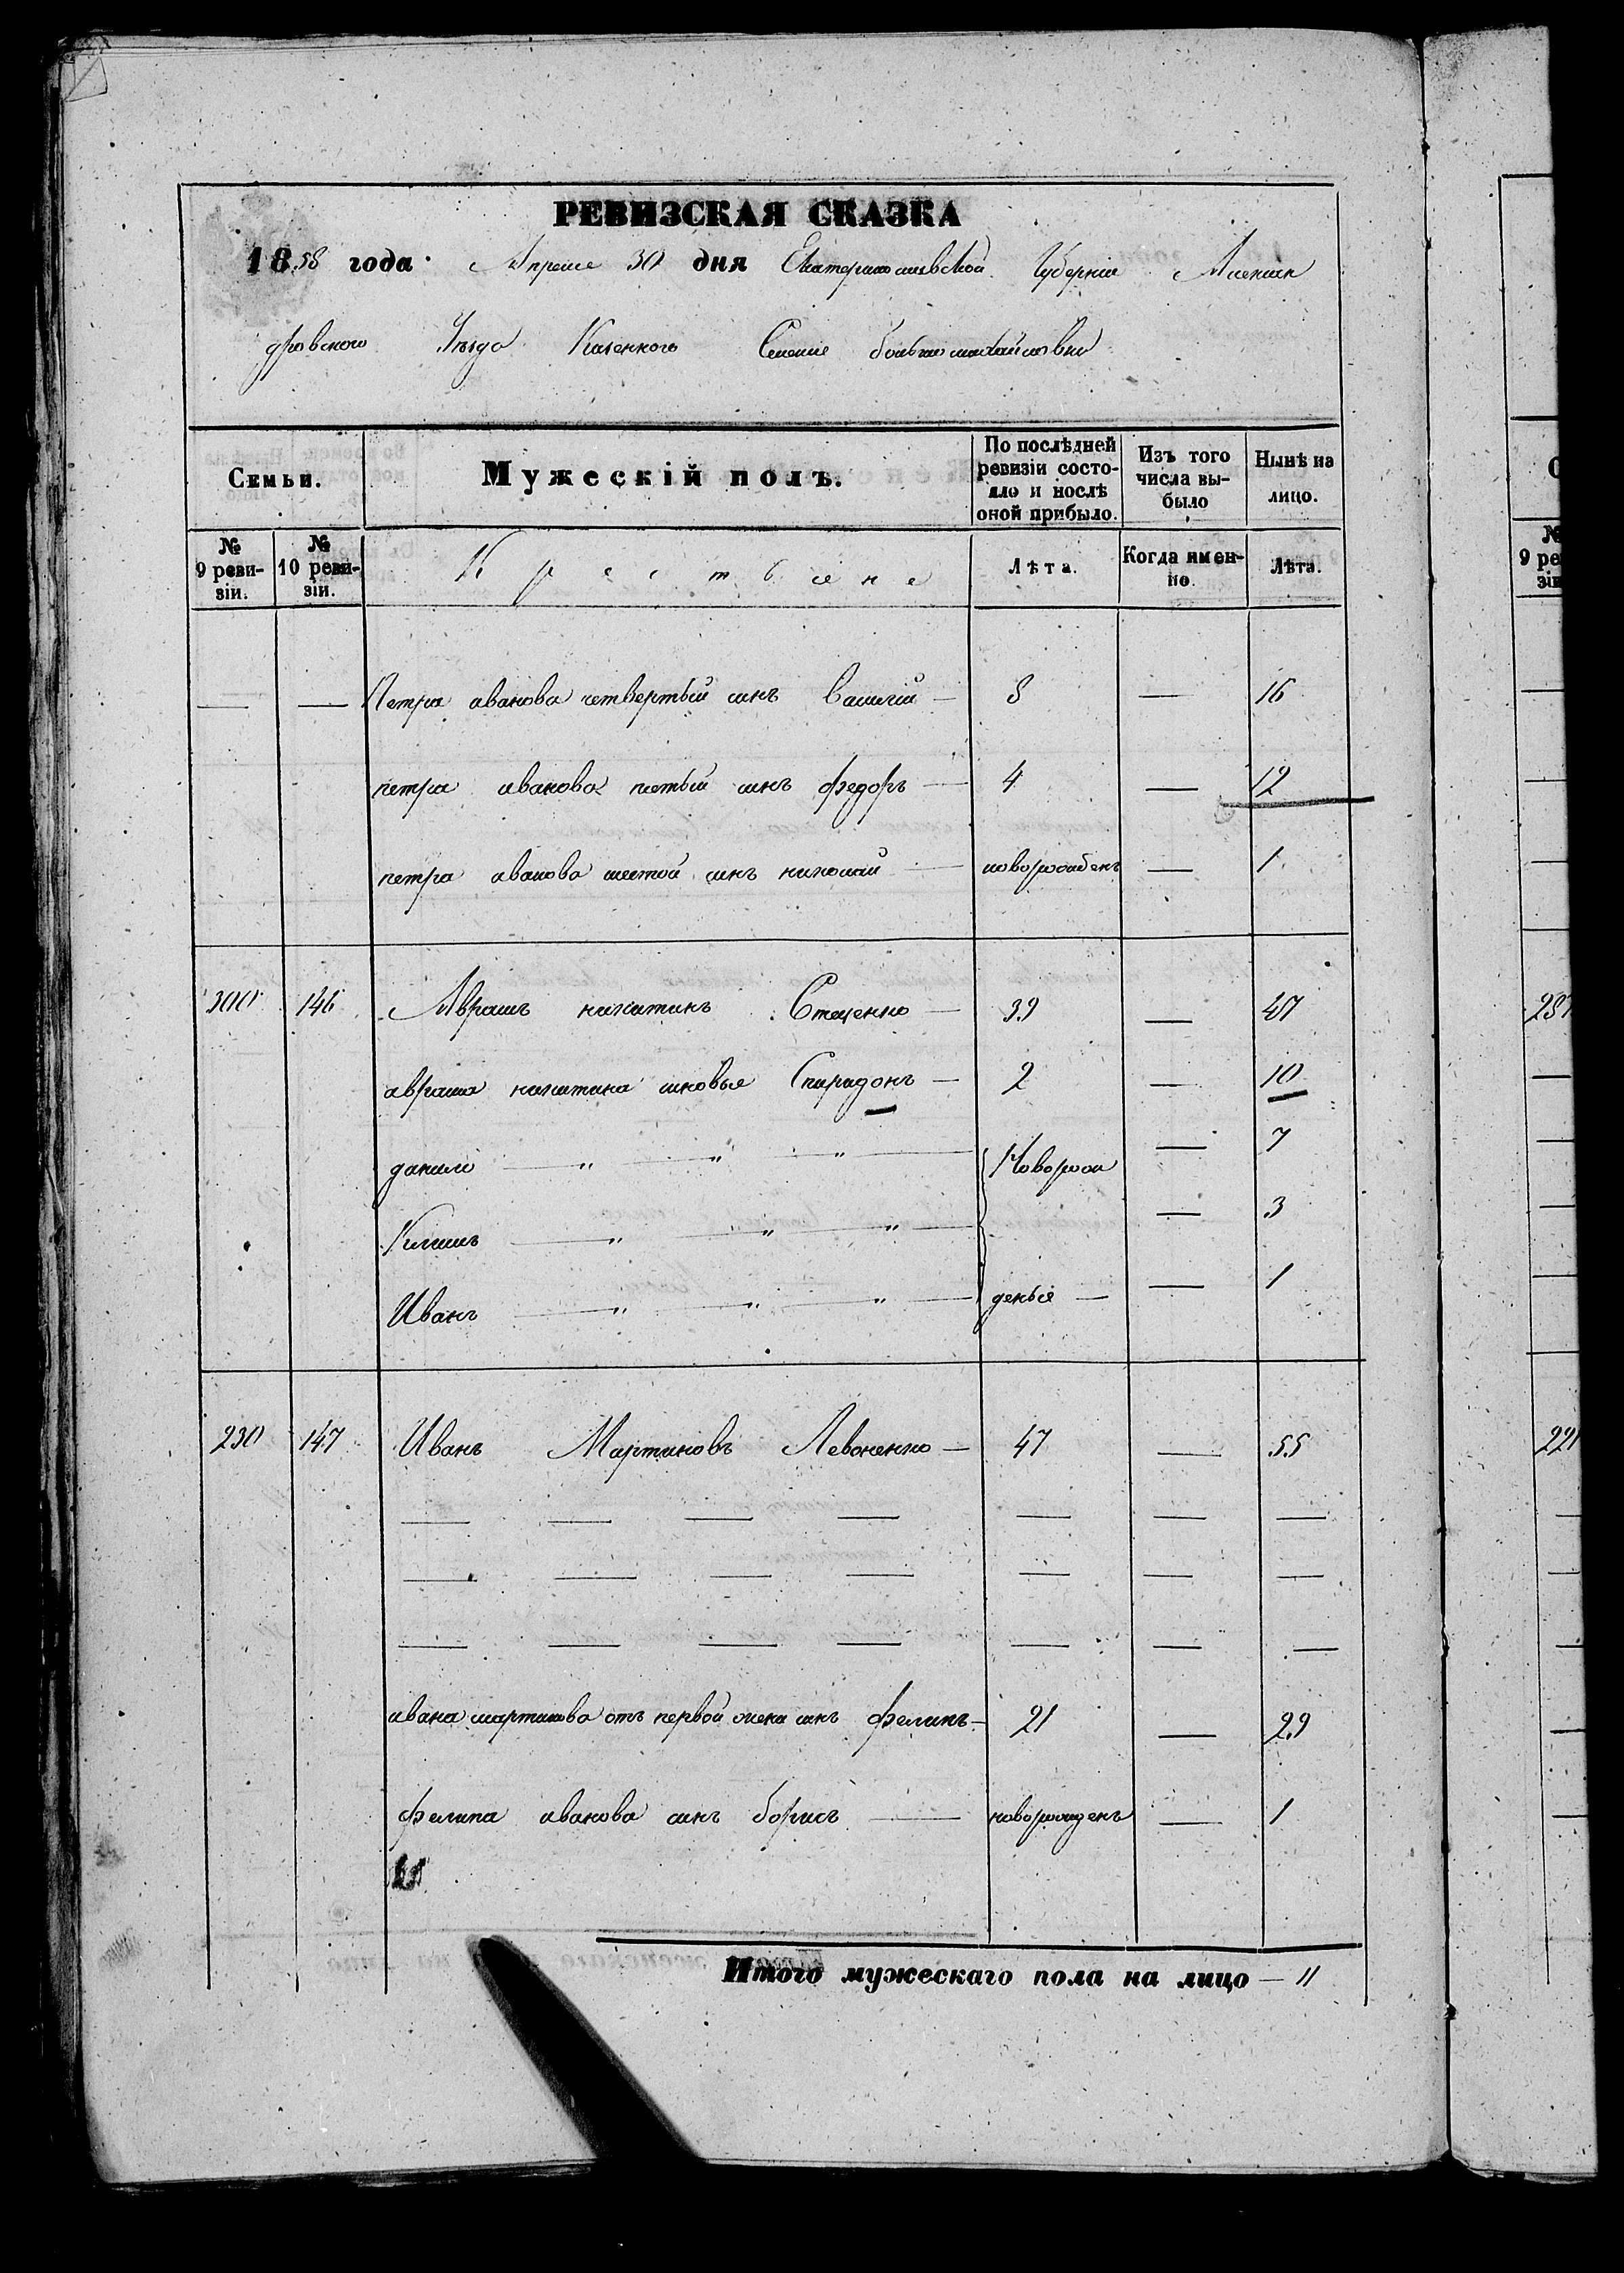 РЕВИЗСКАЯ СКАЗКА
1858 года Апреля 30 дня Екатеринославской Губерніи Алексан
дровского Уѣзда Казенного Селенія большемихайловки
Семьи. Мужескій полъ. По послѣдней ревизіи состояло и послѣ оной прибыло. Изъ того числа выбыло Нынѣ на лицо.
№ 9 ревизіи. № 10 ревизіи. Крестьяне Лѣта. Когда именно. Лѣта.
— — Петра иванова четвертый синъ Василій — 8 — 16
петра иванова пятый синъ федоръ — 4 — 12
петра иванова шестой синъ николай — новорожденъ — 1
300 146 Аврамъ никитинъ Стеценко — 39 — 47
аврама никитина синовья Спиридонъ — 2 — 10
данило — " — " — " — Новорож — 7
Климъ — " — " — " — — 3
Иванъ — " — " — " — деные — — 1
230 147 Иванъ Мартиновъ Левоненко — 47 — 55
— — — — — — —
— — — — — — —
— — — — — — —
ивана мартинова отъ первой жени синъ филипъ — 21 — 29
филипа иванова синъ борисъ — новорожденъ — 1
Итого мужескаго пола на лицо — 11
№
9 ре
зіи
287
221